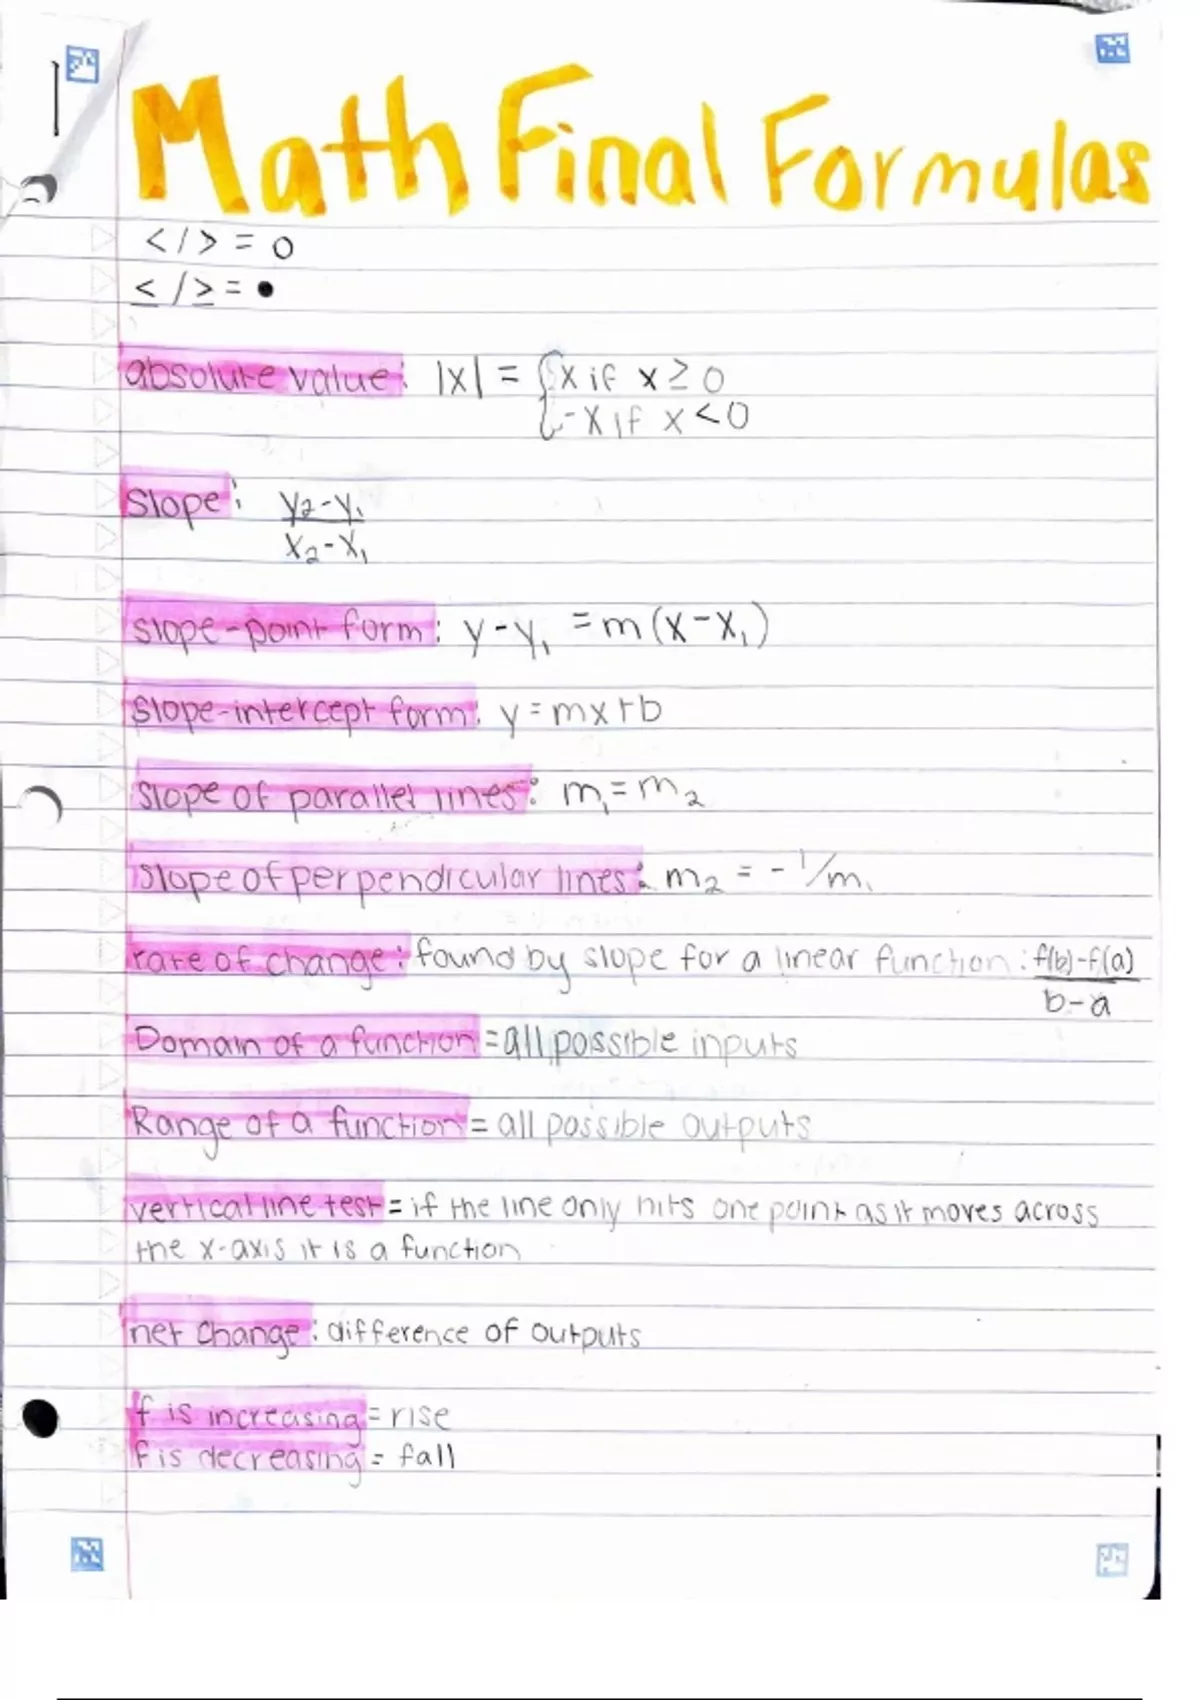 Math Final Formulas
</> = o
≤/≥ = •
absolute value: |x| = {x if x ≥ 0
-x if x < 0
Slope: y₂-y₁
x₂-x₁
slope-point form: y-y₁ = m(x-x₁)
Slope-intercept form: y = mx+b
Slope of parallel lines: m₁=m₂
Slope of perpendicular lines: m₂ = -1/m₁
rate of change: found by slope for a linear function: f(b)-f(a)
b-a
Domain of a function = all possible inputs
Range of a function = all possible outputs
vertical line test = if the line only hits one point as it moves across
the x-axis it is a function
net change: difference of outputs
f is increasing = rise
f is decreasing = fall